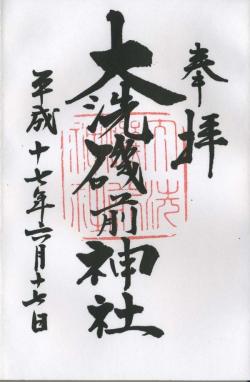 奉拝
大洗磯前神社
平成十七年六月十七日